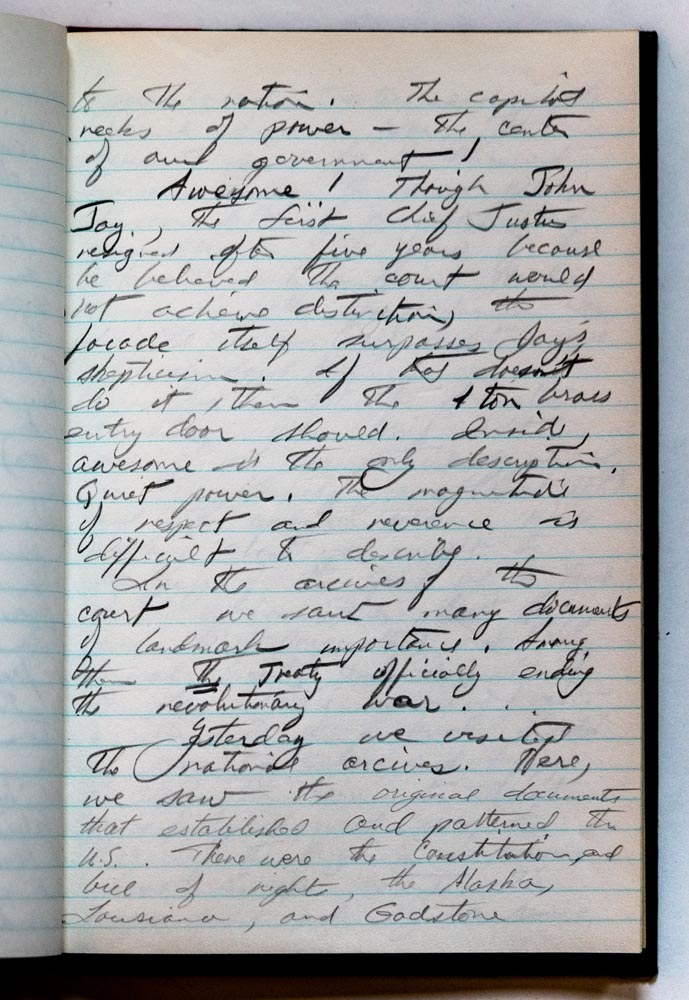 to the nation. The capitol
reeks of power — the center
of our government!
Awesome! Though John
Jay, the first chief Justice
resigned after five years because
he believed the court would
not achieve distinction, the
facade itself surpasses Jay's
skepticism. If that doesn't
do it, then the 1 ton brass
entry door should. Inside,
awesome is the only description.
Quiet power. The magnitude
of respect and reverence is
difficult to describe.
In the arcives of the
court we saw many documents
of landmark importance. Among
them The Treaty officially ending
the revolutionary war. . .
Yesterday we visited
the national arcives. Here,
we saw the original documents
that established and patterned the
U.S. There were the Constitution, and
bill of rights, the Alaska,
Louisiana, and Gadstone